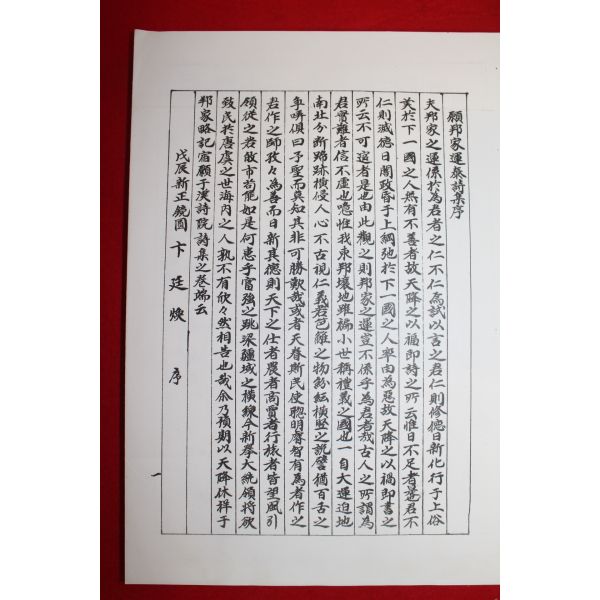 願邦家運泰詩集序
夫邦家之運係於為君者之仁不仁為試以言之君仁則修德日新化行于上俗
美於下一國之人無有不善者故天降之以福即詩之所云惟日不足者是君不
仁則滅德日闇政昏于上綱弛於下一國之人率由為惡故天降之以禍即書之
所云不可逭者是也由此觀之則邦家之運豈不係乎為君者哉古人之所謂為
君實難者信不虛也噫惟我東邦壤地雖褊小世稱禮義之國也一自大運迫地
南北分斷蹄跡橫侵人心不古視仁義若笆籬之物紛紜橫竪之說譬猶百舌之
爭哢俱曰予聖而莫知其非可勝歎哉或者天眷斯民使聰明睿智有為者作之
君作之師孜々為善而日新其德則天下之仕者農者商賈者行旅者皆望風引
領從之若故市苟能如是何患乎富強之跳梁疆域之橫線今新擧大統領將欲
致民於唐虞之世海內之人孰不有欣々然相告也哉余乃預期以天降休祥于
邦家略記宿願于漢詩院詩集之卷端云
戊辰新正鏡園 卞廷煥 序
一